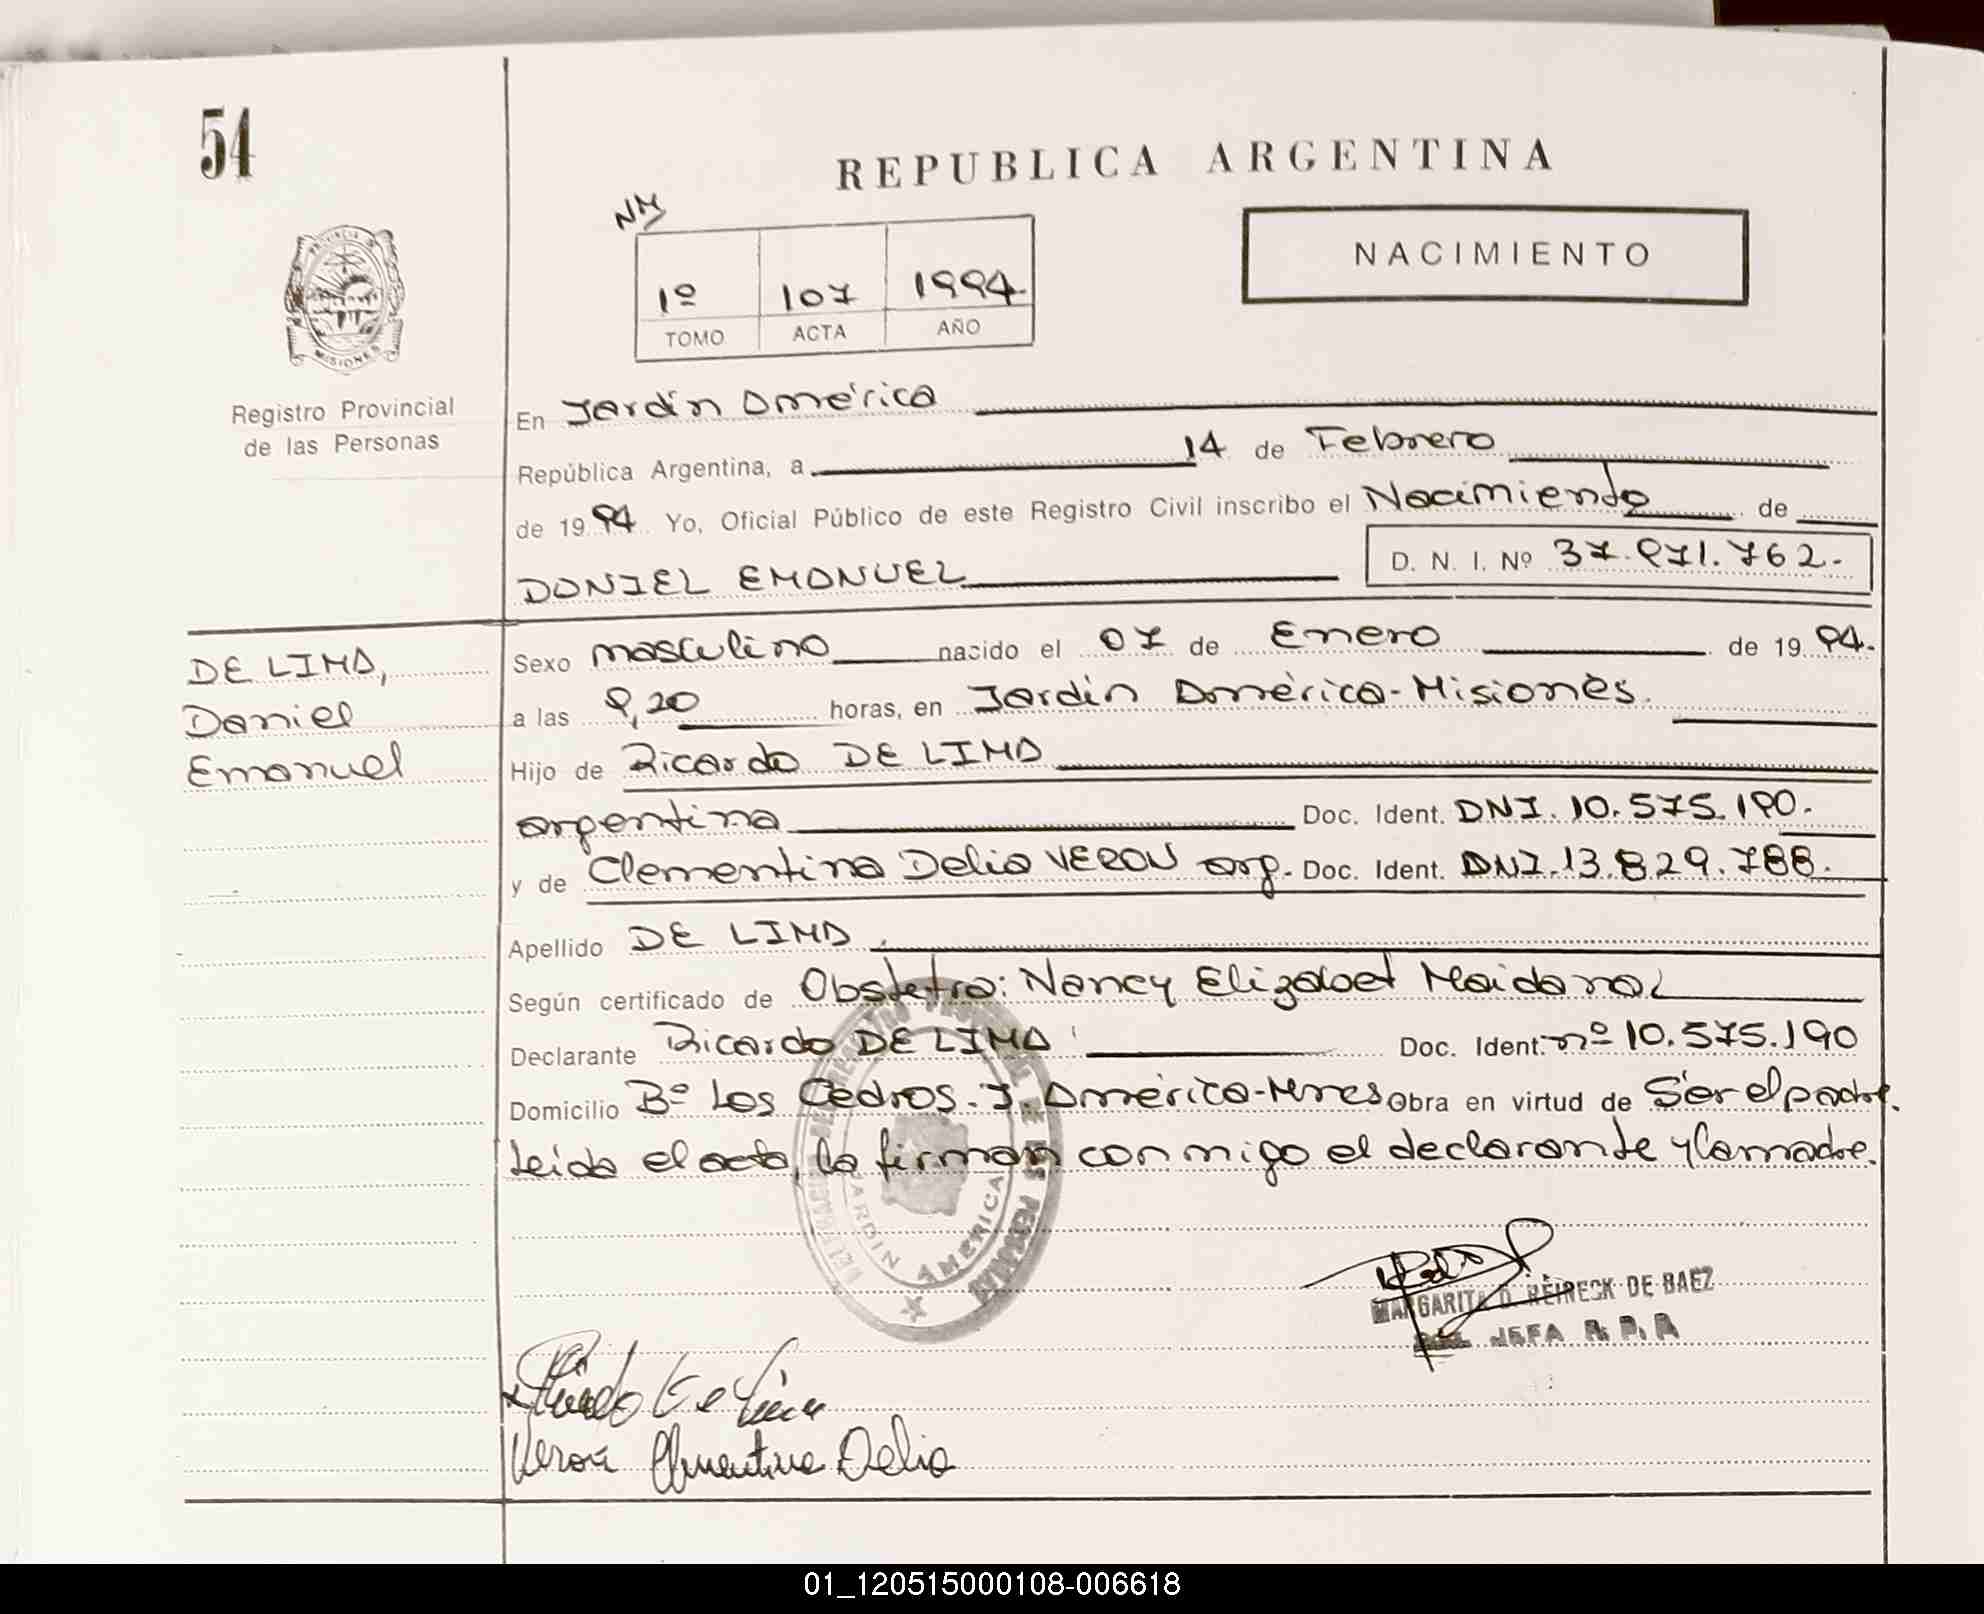 54
REPUBLICA ARGENTINA
NM
1º 107 1994
TOMO ACTA AÑO
NACIMIENTO
PROVINCIA DE MISIONES
Registro Provincial
de las Personas
En Jardín América
República Argentina, a 14 de Febrero
de 1994 Yo, Oficial Público de este Registro Civil inscribo el Nacimiento de
DANIEL EMANUEL D. N. I. Nº 37.971.762.-
DE LIMA,
Daniel
Emanuel
Sexo masculino nacido el 07 de Enero de 1994.
a las 9,20 horas, en Jardín América-Misiones.
Hijo de Ricardo DE LIMA
argentina Doc. Ident. DNI. 10.575.190.
y de Clementina Delia VERON arg. Doc. Ident. DNI. 13.829.788.
Apellido DE LIMA.
Según certificado de Obstetra: Nancy Elizabet Maidana
Declarante Ricardo DE LIMA Doc. Ident. nº 10.575.190
Domicilio Bº Los Cedros. J. América-Mnes Obra en virtud de Ser el padre.
Leida el acta, la firman conmigo el declarante y la madre.
JARDIN AMERICA
MARGARITA D. REIRECK DE BAEZ
JEFA R. P. P.
Ricardo De Lima
Veron Clementina Delia
01_120515000108-006618